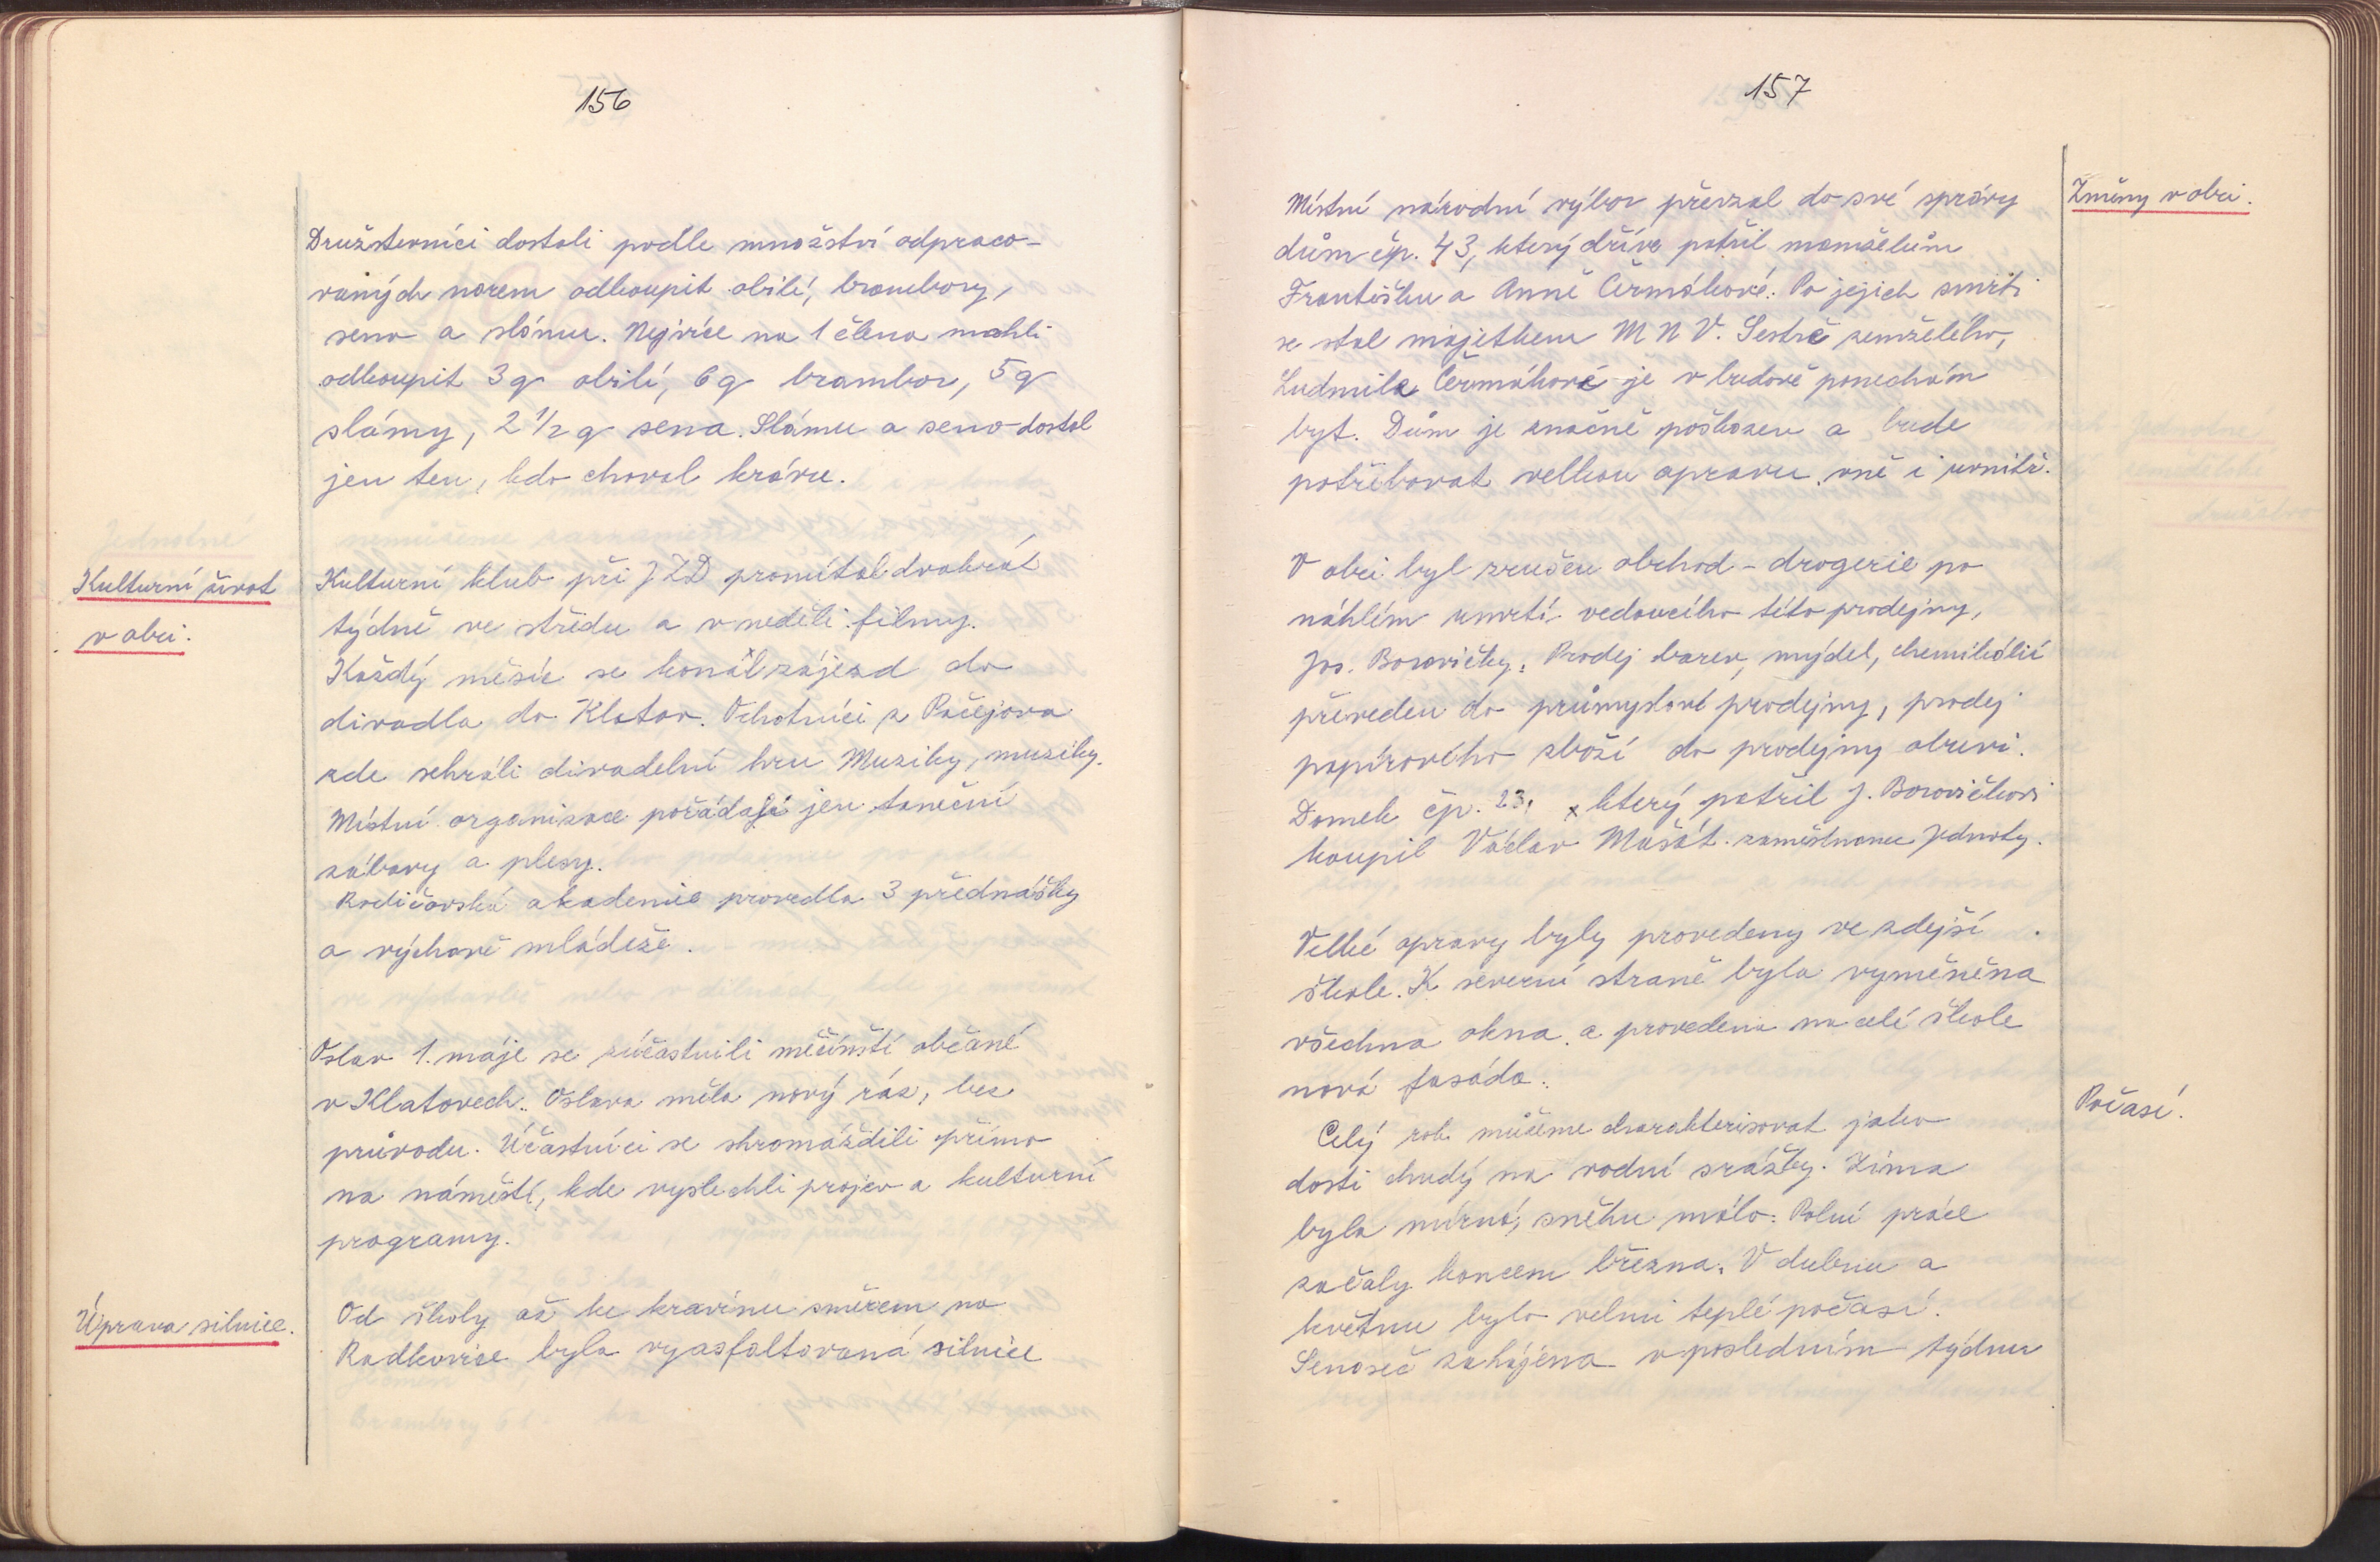 156
Družstevníci dostali podle množství odpraco-
vaných norem odkoupit obilí, brambory,
seno a slámu. Nejvíce na 1 člena mohli
odkoupit 3 q obilí, 6 q brambor, 5 q
slámy, 2 1/2 q sena. Slámu a seno dostal
jen ten, kdo choval krávu.
Kulturní život
v obci.
Kulturní klub při JZD promítal dvakrát
týdně ve středu a v neděli filmy.
Každý měsíc se konal zájezd do
divadla do Klatov. Ochotníci z Pačejova
zde sehráli divadelní hru Muziky, muziky.
Místní organizace pořádají jen taneční
zábavy a plesy.
Rodičovská akademie provedla 3 přednášky
o výchově mládeže.
Oslav 1. máje se zúčastnili měčínští občané
v Klatovech. Oslava měla nový ráz, bez
průvodu. Účastníci se shromáždili přímo
na náměstí, kde vyslechli projev a kulturní
programy.
Úprava silnice.
Od školy až ke kravínu směrem na
Radkovice byla vyasfaltovaná silnice
157
Změny v obci.
Místní národní výbor převzal do své správy
dům čp. 43, který dříve patřil manželům
Františku a Anně Čermákové. Po jejich smrti
se stal majetkem M N V. Sestře zemřelého,
Ludmile Čermákové je v budově ponechán
byt. Dům je značně poškozen a bude
potřebovat velkou opravu vně i uvnitř.
V obci byl zrušen obchod - drogerie po
náhlém úmrtí vedoucího této prodejny,
Jos. Borovičky. Prodej barev, mýdel, chemikálií
převeden do průmyslové prodejny, prodej
papírového zboží do prodejny obuvi.
Domek čp. 23, který patřil J. Borovičkovi
koupil Václav Mašát zaměstnanec Jednoty.
Velké opravy byly provedeny ve zdejší
škole. K severní straně byla vyměněna
všechna okna a provedena na celé škole
nová fasáda.
Počasí.
Celý rok můžeme charakterisovat jako
dosti chudý na vodní srážky. Zima
byla mírná, sněhu málo. Polní práce
začaly koncem března. V dubnu a
květnu bylo velmi teplé počasí.
Senoseč zahájena v posledním týdnu